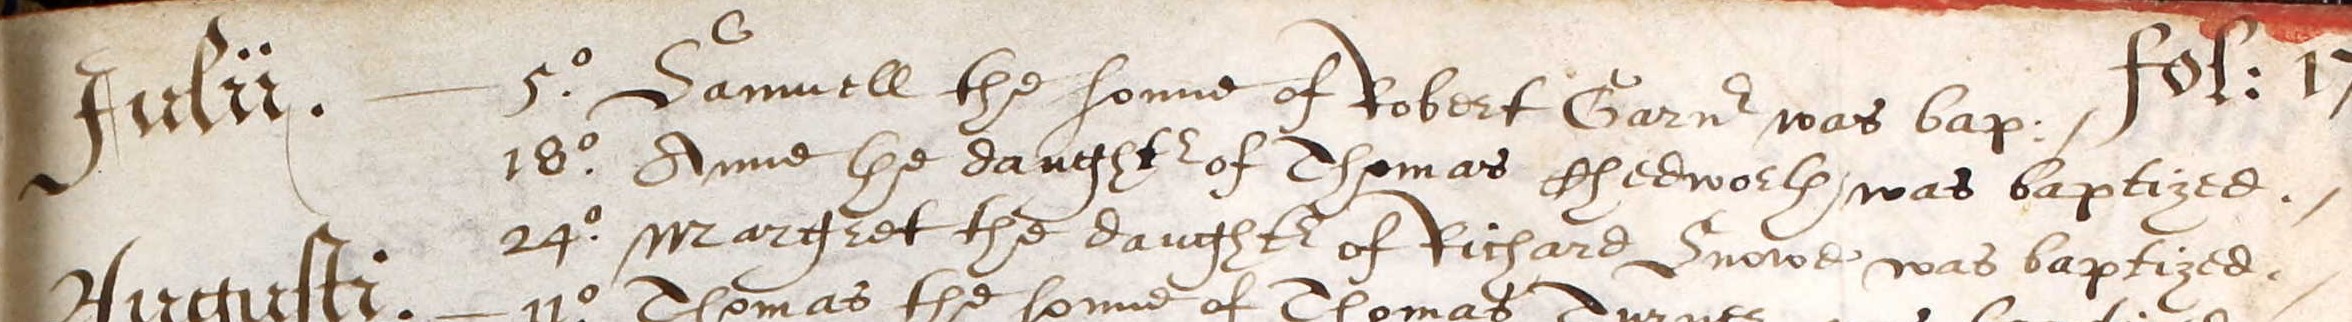 Julii. — 5.º Samuell the sonne of Robert Garnr was bap: / fol: 17
18.º Anne the daughtr of Thomas Chedworth was baptized. /
24.º Margret the daughtr of Richard Snowe was baptized. /
Augusti. — 11.º Thomas the sonne of Thomas Turner